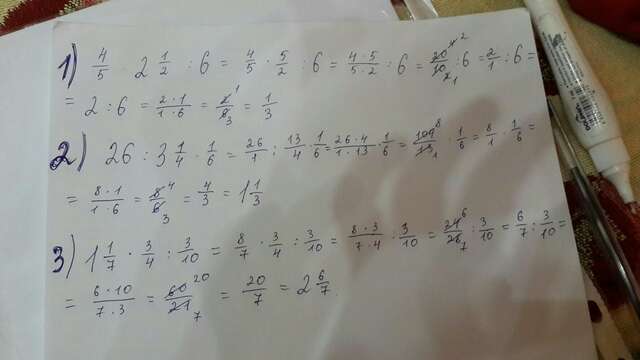 1) 4/5 · 2 1/2 : 6 = 4/5 · 5/2 : 6 = 4·5/5·2 : 6 = 20/10 4 2 2 1 : 6 = 2/1 : 6 =
= 2 : 6 = 2·1/1·6 = 2/6 1 3 = 1/3
2) 26 : 3 1/4 · 1/6 = 26/1 : 13/4 · 1/6 = 26·4/1·13 · 1/6 = 104/13 8 1 · 1/6 = 8/1 · 1/6 =
= 8·1/1·6 = 8/6 4 3 = 4/3 = 1 1/3
3) 1 1/7 · 3/4 : 3/10 = 8/7 · 3/4 : 3/10 = 8·3/7·4 : 3/10 = 24/28 6 7 : 3/10 = 6/7 : 3/10 =
= 6·10/7·3 = 60/21 20 7 = 20/7 = 2 6/7.